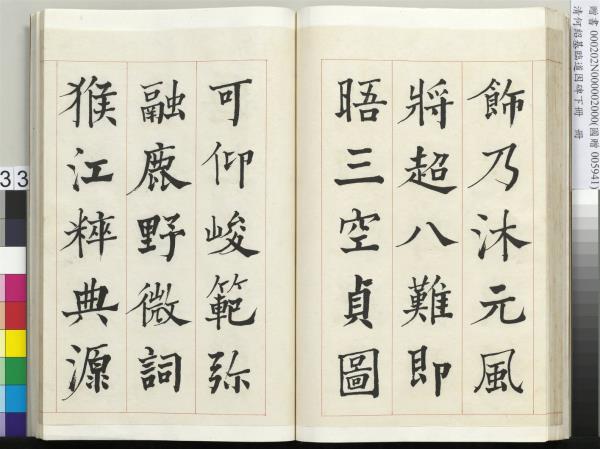 飾乃沐元風
將超八難即
晤三空貞圖
可仰峻範弥
融鹿野微詞
猴江粹典源
贈書 000202N000002000(國贈 005941)
清何紹基臨道因碑下冊 冊
33